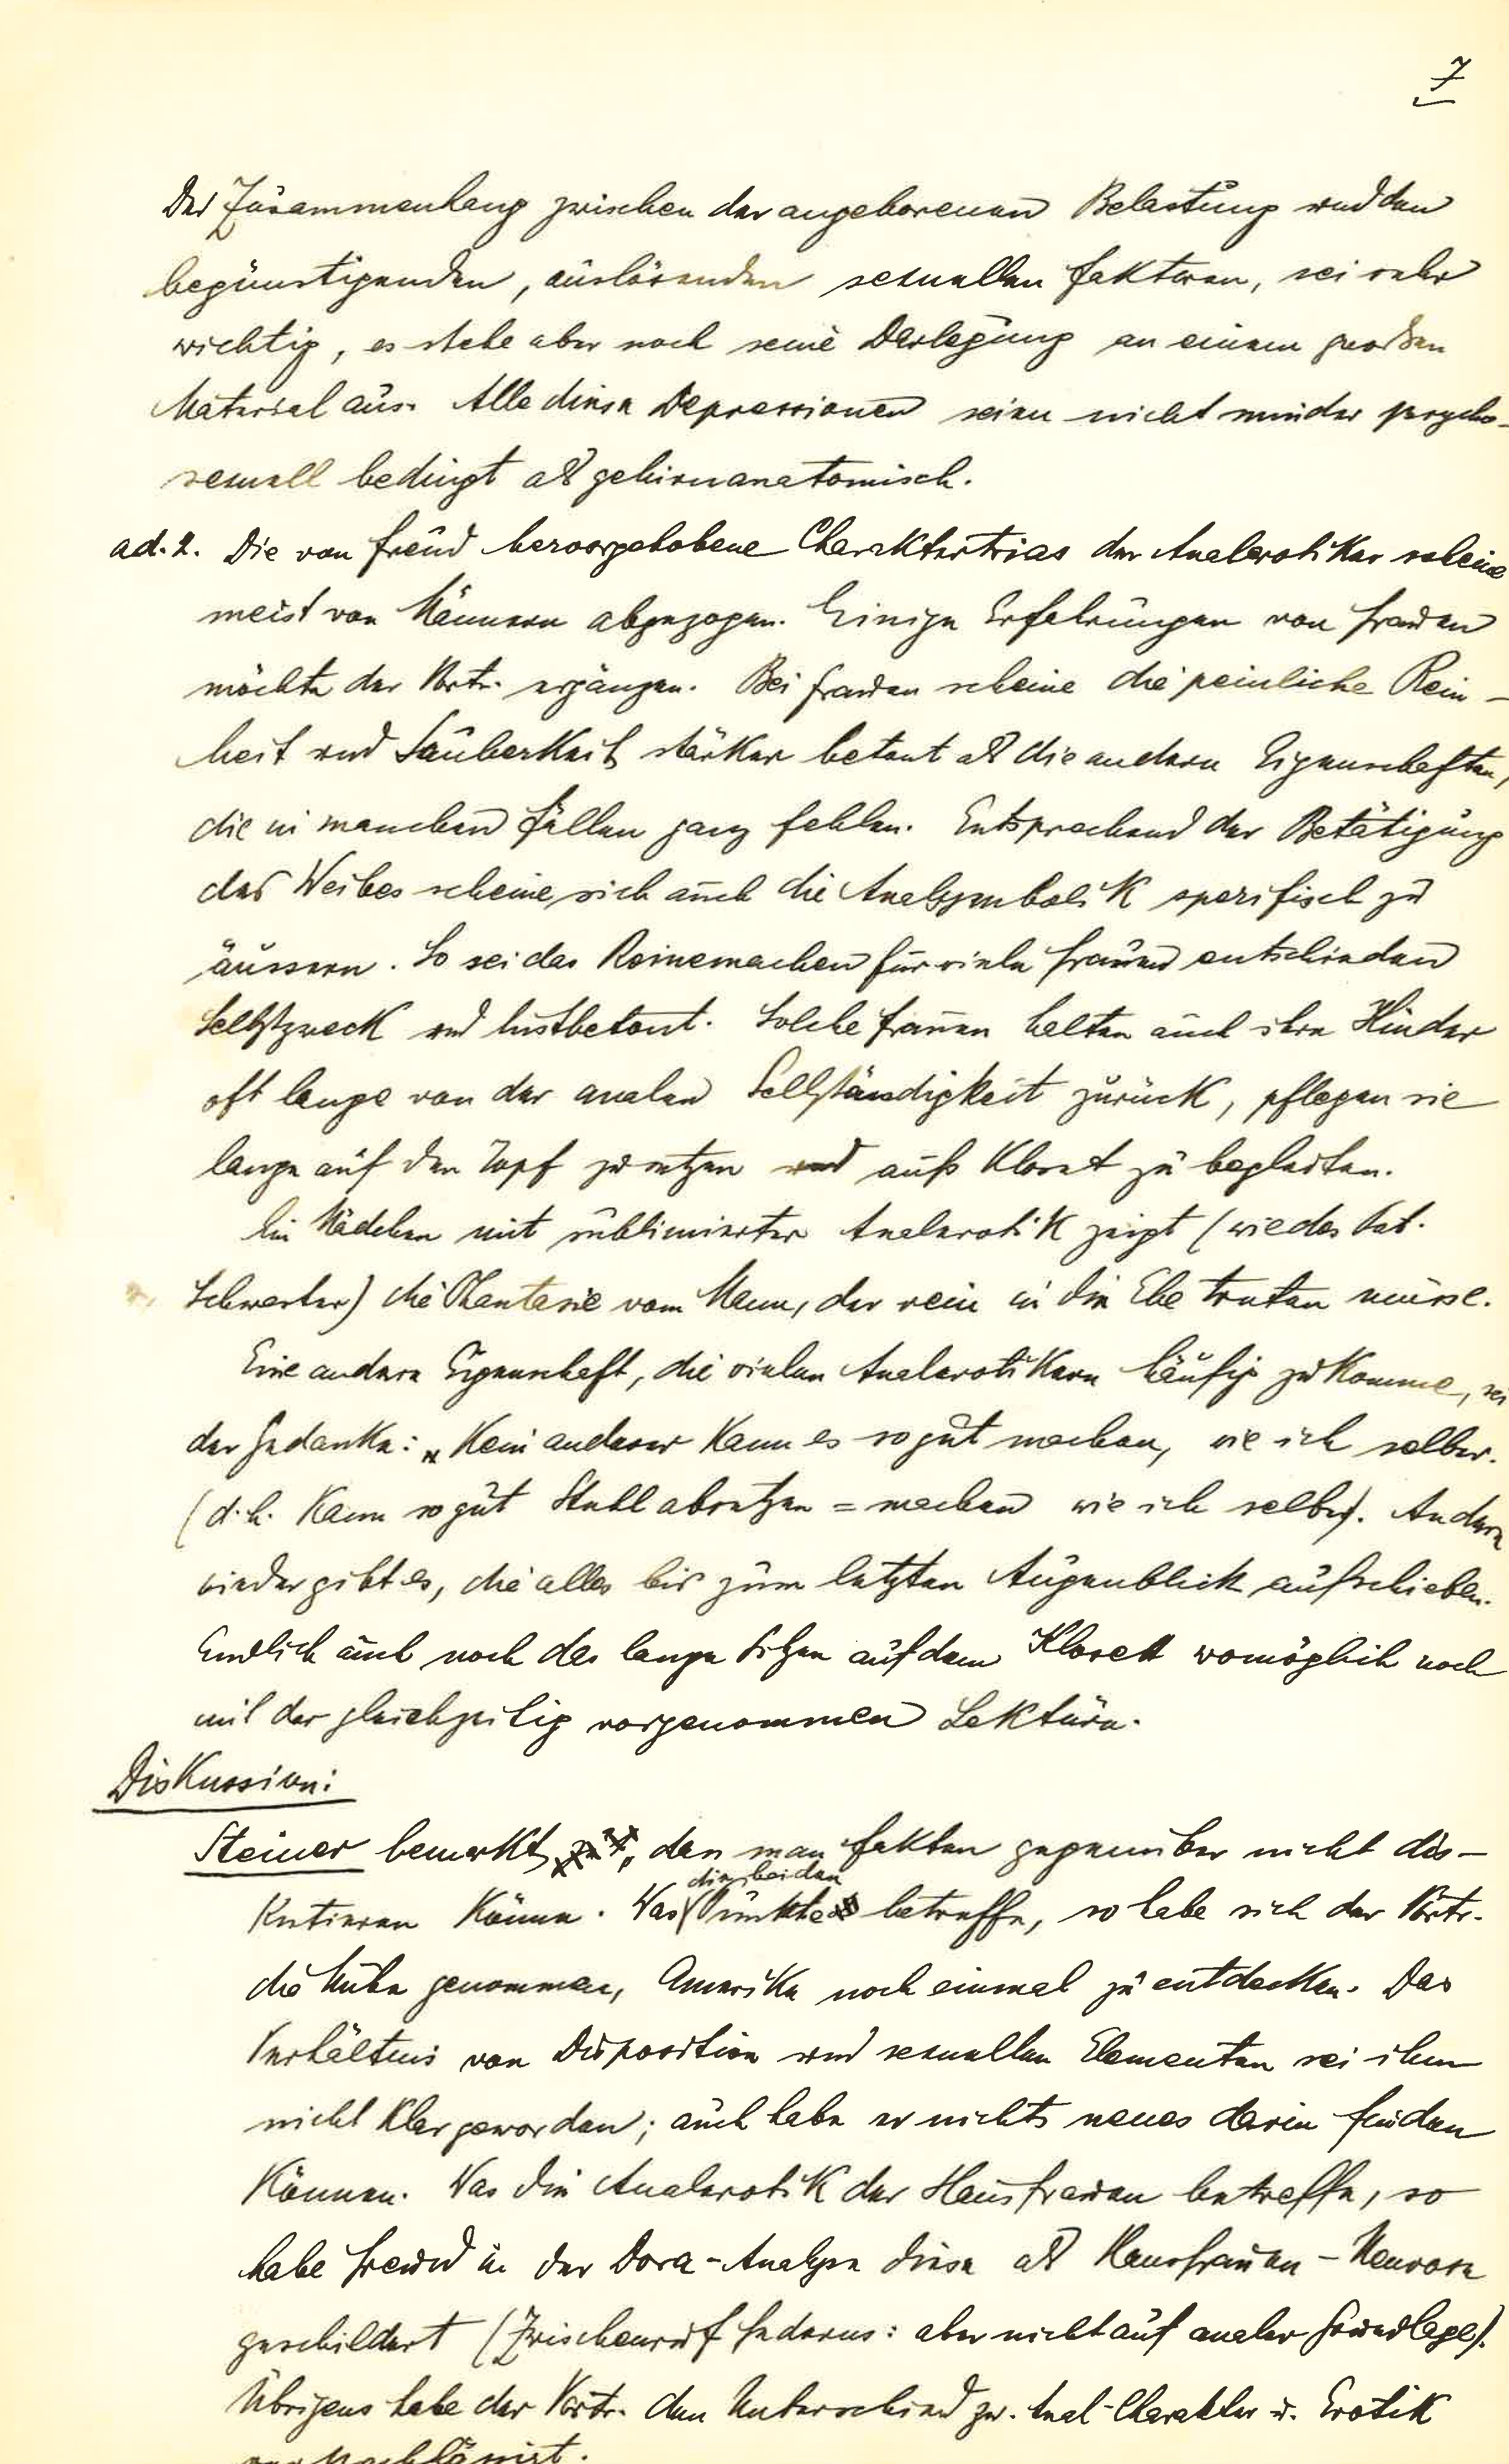 7
Der Zusammenhang zwischen der angeborenen Belastung und den
begünstigenden, auslösenden sexuellen Faktoren, sei sehr
wichtig, es stehe aber noch seine Darlegung an einem großen
Material aus. Alle diese Depressionen seien nicht minder psycho-
sexuell bedingt als gehirnanatomisch.
ad. 2. Die von Freud hervorgehobene Charaktertrias der Analerotiker scheine
meist von Männern abgezogen. Einige Erfahrungen von Frauen
möchte der Vortr. ergänzen. Bei Frauen scheine die peinliche Rein-
heit und Sauberkeit stärker betont als die andern Eigenschaften,
die in manchen Fällen ganz fehlen. Entsprechend der Betätigung
des Weibes scheine sich auch die Analsymbolik spezifisch zu
äussern. So sei das Reinemachen für viele Frauen entschieden
Selbstzweck und lustbetont. Solche Frauen halten auch ihre Kinder
oft lange von der analen Selbständigkeit zurück, pflegen sie
lange auf den Topf zu setzen und aufs Kloset zu begleiten.
Ein Mädchen mit sublimierter Analerotik zeigt (wie des Pat.
Schwester) die Phantasie vom Mann, der rein in die Ehe treten müsse.
Eine andere Eigenschaft, die vielen Analerotikern häufig zu Komme, sei
der Gedanke: „Kein anderer Kann es so gut machen, wie ich selber.
(d.h. Kann so gut Stuhl absetzen = machen wie ich selber). Andere
wieder gibt es, die alles bis zum letzten Augenblick aufschieben.
Endlich auch noch das lange Sitzen auf dem Klosett womöglich noch
mit der gleichzeitig vorgenommen Lektüre.
Diskussion:
Steiner bemerkt, dass man Fakten gegenüber nicht dis-
kutieren Könne. Was die beiden Punkte betreffe, so habe sich der Vortr.
die Mühe genommen, Amerika noch einmal zu entdecken. Das
Verhältnis von Disposition und sexuellen Elementen sei ihm
nicht Klar geworden; auch habe er nichts neues darin finden
Können. Was die Analerotik der Hausfrauen betreffe, so
habe Freud in der Dora-Analyse diese als Hausfrauen-Neurose
geschildert (Zwischenruf Federns: aber nicht auf analer Grundlage).
Übrigens habe der Vortr. den Unterschied zw. Anal-Charakter u. Erotik
vernachlässigt.